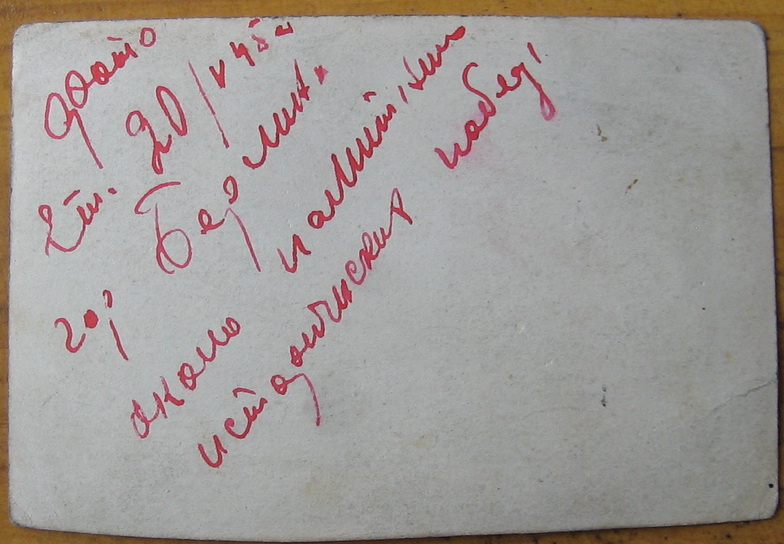 фото
Ет. 20/V 45г
гор Берлин.
около памят,ник
исторических побед,